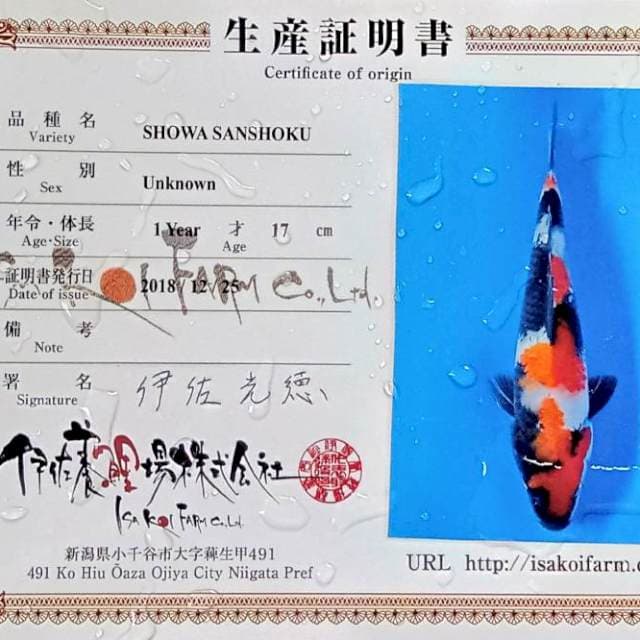 生産証明書
Certificate of origin
品種名
Variety
SHOWA SANSHOKU
性別
Sex
Unknown
年令・体長
Age・Size
1 Year 才 17 cm
Age
証明書発行日
Date of issue
2018 12 25
KOI FARM Co.,Ltd.
備考
Note
署名
Signature
伊佐光徳
伊佐養鯉場株式会社
ISA KOI FARM Co.,Ltd.
新潟県小千谷市大字薭生甲491
491 Ko Hiu Ōaza Ojiya City Niigata Pref
URL http://isakoifarm.